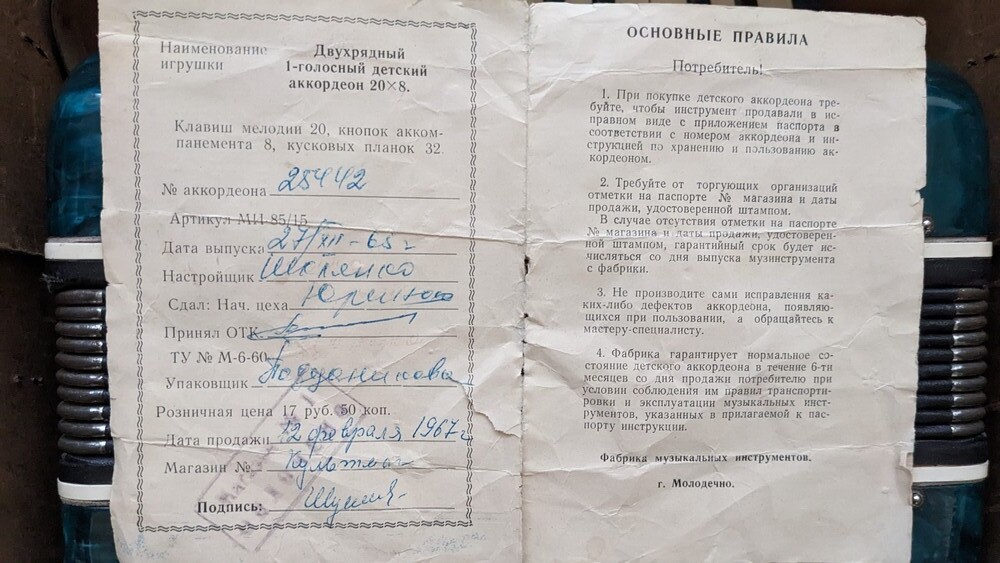 Наименование
игрушки
Двухрядный
1-голосный детский
аккордеон 20×8.
Клавиш мелодии 20, кнопок акком-
панемента 8, кусковых планок 32.
№ аккордеона 25442
Артикул МИ-85/15
Дата выпуска 27/XII-65 г
Настройщик
Сдал: Нач. цеха
Принял ОТК
ТУ № М-6-60
Упаковщик
Розничная цена 17 руб. 50 коп.
Дата продажи 12 февраля 1967 г
Магазин №
Подпись:
ОСНОВНЫЕ ПРАВИЛА
Потребитель!
1. При покупке детского аккордеона тре-
буйте, чтобы инструмент продавали в ис-
правном виде с приложением паспорта в
соответствии с номером аккордеона и ин-
струкцией по хранению и пользованию ак-
кордеоном.
2. Требуйте от торгующих организаций
отметки на паспорте № магазина и даты
продажи, удостоверенной штампом.
В случае отсутствия отметки на паспорте
№ магазина и даты продажи, удостоверен-
ной штампом, гарантийный срок будет ис-
числяться со дня выпуска музинструмента
с фабрики.
3. Не производите сами исправления ка-
ких-либо дефектов аккордеона, появляю-
щихся при пользовании, а обращайтесь к
мастеру-специалисту.
4. Фабрика гарантирует нормальное со-
стояние детского аккордеона в течение 6-ти
месяцев со дня продажи потребителю при
условии соблюдения им правил транспорти-
ровки и эксплуатации музыкальных инст-
рументов, указанных в прилагаемой к пас-
порту инструкции.
Фабрика музыкальных инструментов.
г. Молодечно.